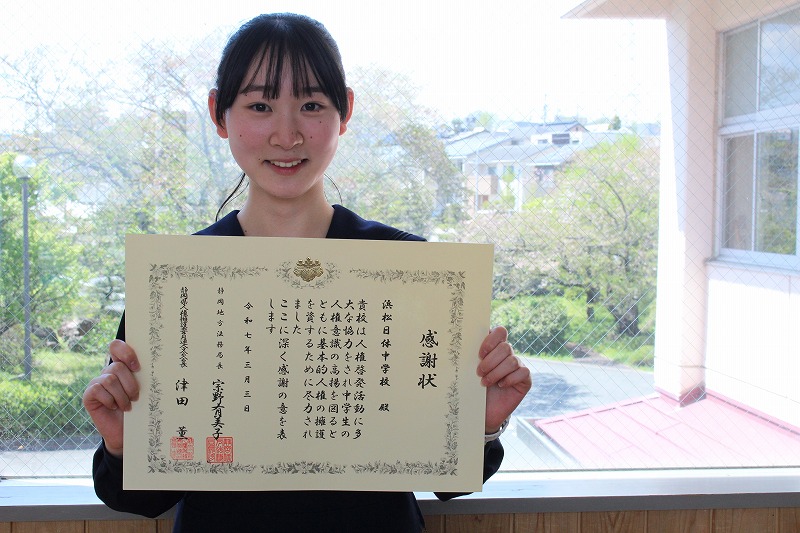 感謝状
浜松日体中学校 殿
貴校は人権啓発活動に多
大な協力をされ中学生の
人権意識の高揚を図ると
ともに基本的人権の擁護
を資するために尽力され
ました
ここに深く感謝の意を表
します
令和七年三月三日
静岡地方法務局長 宗野有美子
静岡県人権擁護委員連合会会長 津田 薫